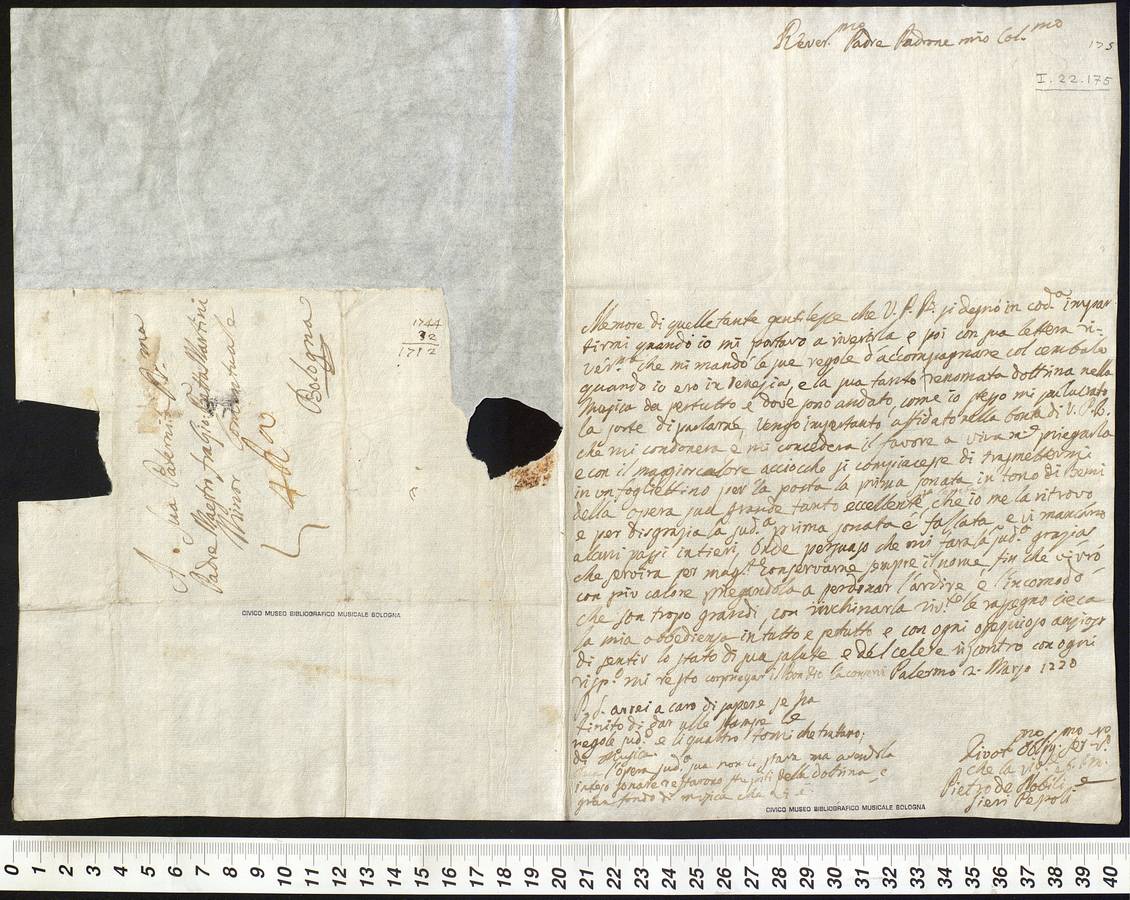 Rever.mo Padre Padrone mio Col.mo
175
I. 22.175
Memore di quelle tante gentilesse che V. P. R. si degnò in cod.a impar
tirmi quando io mi portavo a riverirla e poi con sua lettera ri-
ver.ma che mi mandò le sue regole d'accompagnare col cembalo
quando io ero in Venezia, e la sua tanto renomata dottrina nella
Musica da pertutto e dove sono andato, come io stesso mi
la sorte di parlarne, vengo affidato nella bontà di V. P. R.
che mi condonerà e mi concederà il favore a viva priegarla
e con il maggior calore acciocche si compiacesse di trasmettermi
in un fogliettino per la posta la prima sonata in tono di Bemi
della opera sua grande tanto eccellente, che io me la ritrovo
e per disgrazia la sud.a prima sonata è faslata e vi mancano
alcuni passi intieri, Onde persuaso che mi farà la sud.a grazia
che servirà per conservarne sempre il nome, fin che vivrò
con più calore pregandola a perdonar l'ardire e l'incomodo
che son tropo grandi, con inchinarla le rassegno cieca
la mia obbedienza in tutto e pertutto e con ogni ossequioso
di sentir lo stato di sua salute e del celere riscontro con ogni
risp.o mi resto Palermo 2. Marzo
P. S. avrei a caro di sapere se ha
finito di dar alle stampe le
regole sud.e e li quattro tomi che trattano
di Musica.
l'opera sud.a sua non la
inteso sonare restarono della dottrina, e
gran fondo di musica che
Divot.mo Obblig.mo
Pietro de Nobili e
fieri Pepoli
CIVICO MUSEO BIBLIOGRAFICO MUSICALE BOLOGNA
A Sua Paternità R.ma
Padre Maestro Martini
Minor Conventuale
Bologna
1744
32
1712
CIVICO MUSEO BIBLIOGRAFICO MUSICALE BOLOGNA
0 1 2 3 4 5 6 7 8 9 10 11 12 13 14 15 16 17 18 19 20 21 22 23 24 25 26 27 28 29 30 31 32 33 34 35 36 37 38 39 40